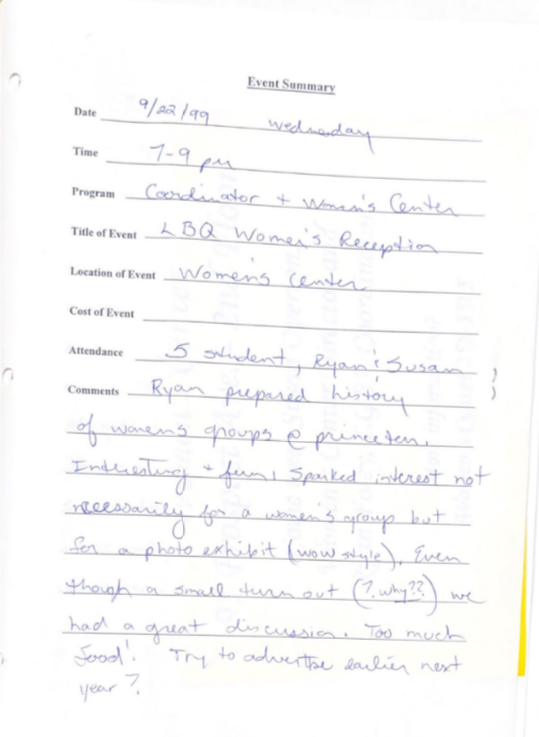 Event Summary
Date 9/22/99 Wednesday
Time 7-9 pm
Program Coordinator + Women's Center
Title of Event LBQ Women's Reception
Location of Event Women's Center
Cost of Event
Attendance 5 student, Ryan & Susan
Comments Ryan prepared history
of womens groups @ princeton.
Interesting + fun, sparked interest not
necessarily for a women's group but
for a photo exhibit (wow style). Even
though a small turn out (?.why??) we
had a great discussion. Too much
food! Try to advertise earlier next
year?